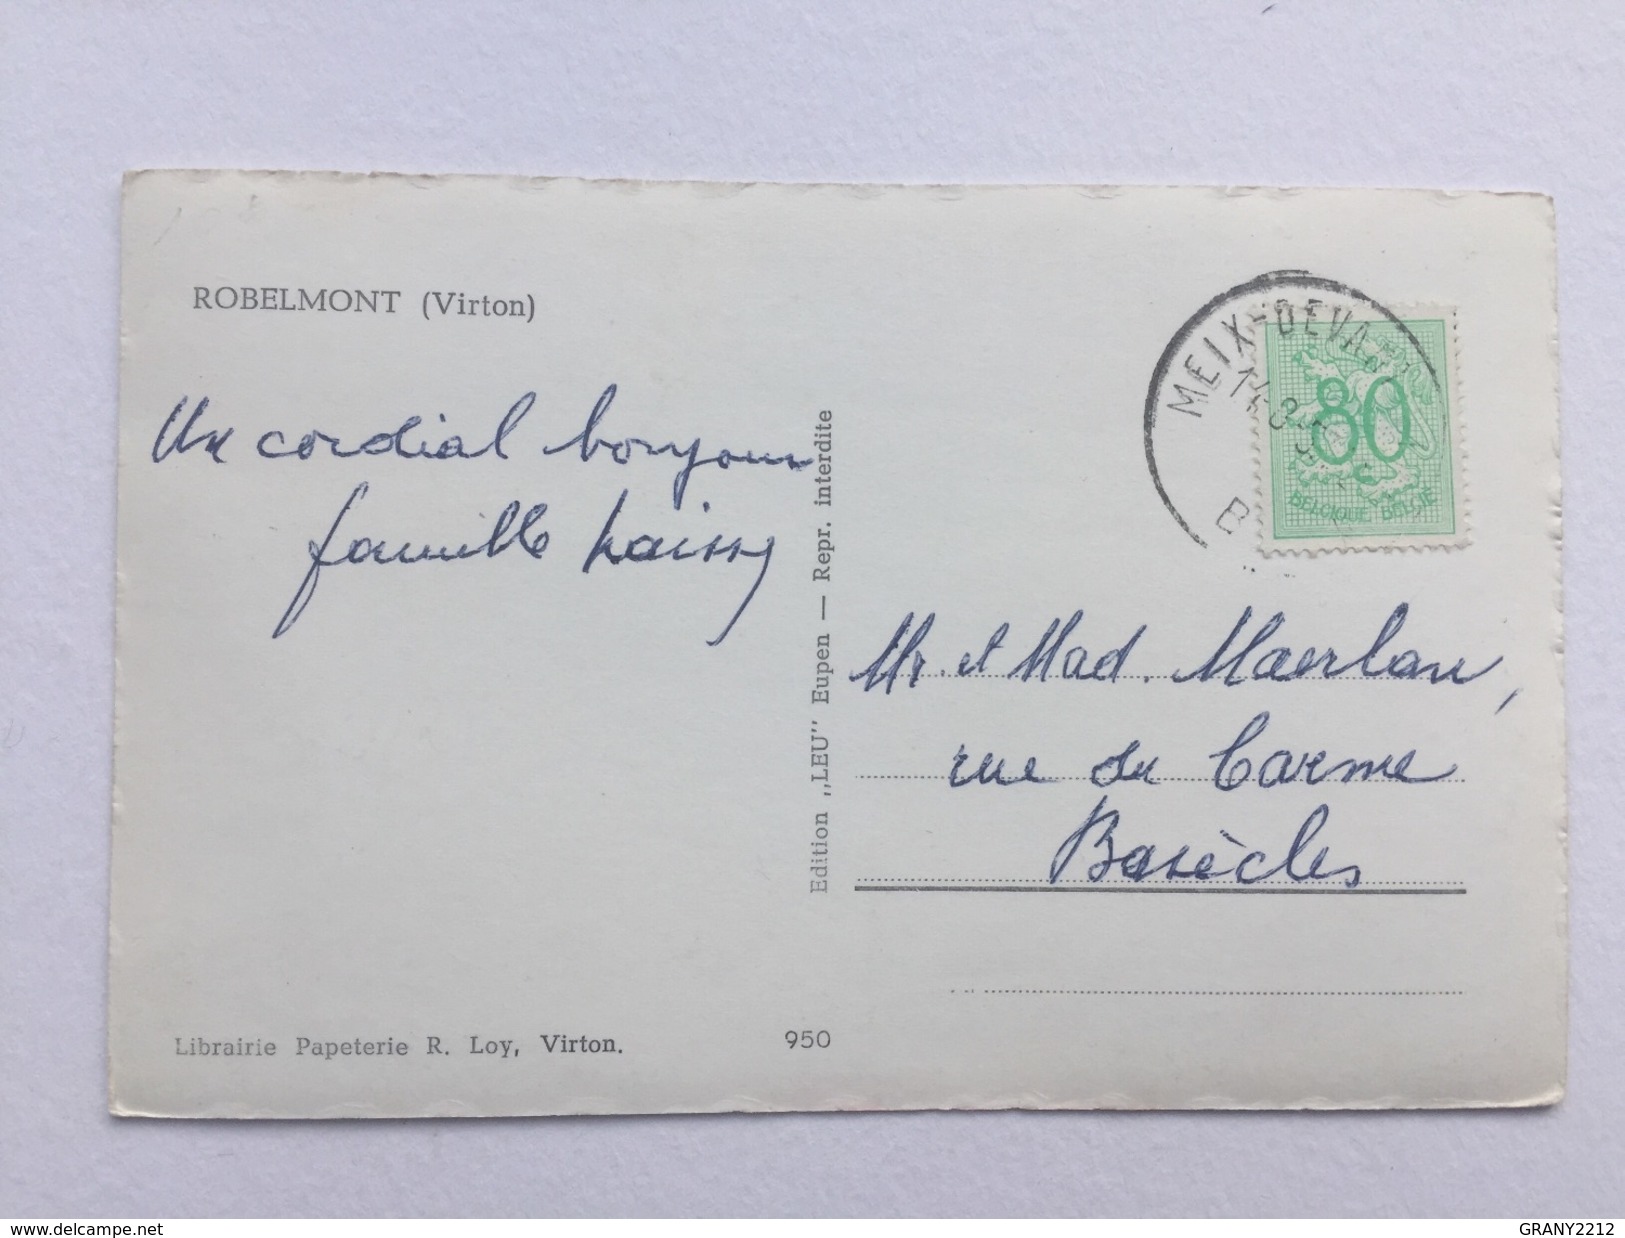 ROBELMONT (Virton)
Un cordial bonjour
famille
Edition „LEU" Eupen — Repr. interdite
Librairie Papeterie R. Loy, Virton.
950
MEIX-DEVA
80
BELGIQUE-BELGIË
Mr. et Mad.
rue du Carme
Basècles
www.delcampe.net
GRANY2212